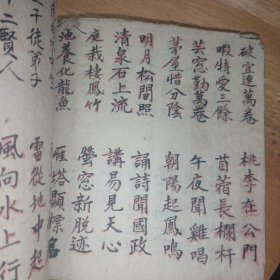 破宜連萬卷 桃李在公門
暇特愛三餘 苜蓿長欄杆
芸窓勤萬卷 午夜聞雞唱
茅屋惜分陰 朝陽起鳳鳴
明月松間照 誦詩聞國政
清泉石上流 講易見天心
庭栽棲鳳竹 螢窓新脫迹
池養化龍魚 雁塔顯標名
千徒弟子 雷從地中起
二賢人 風向水上行